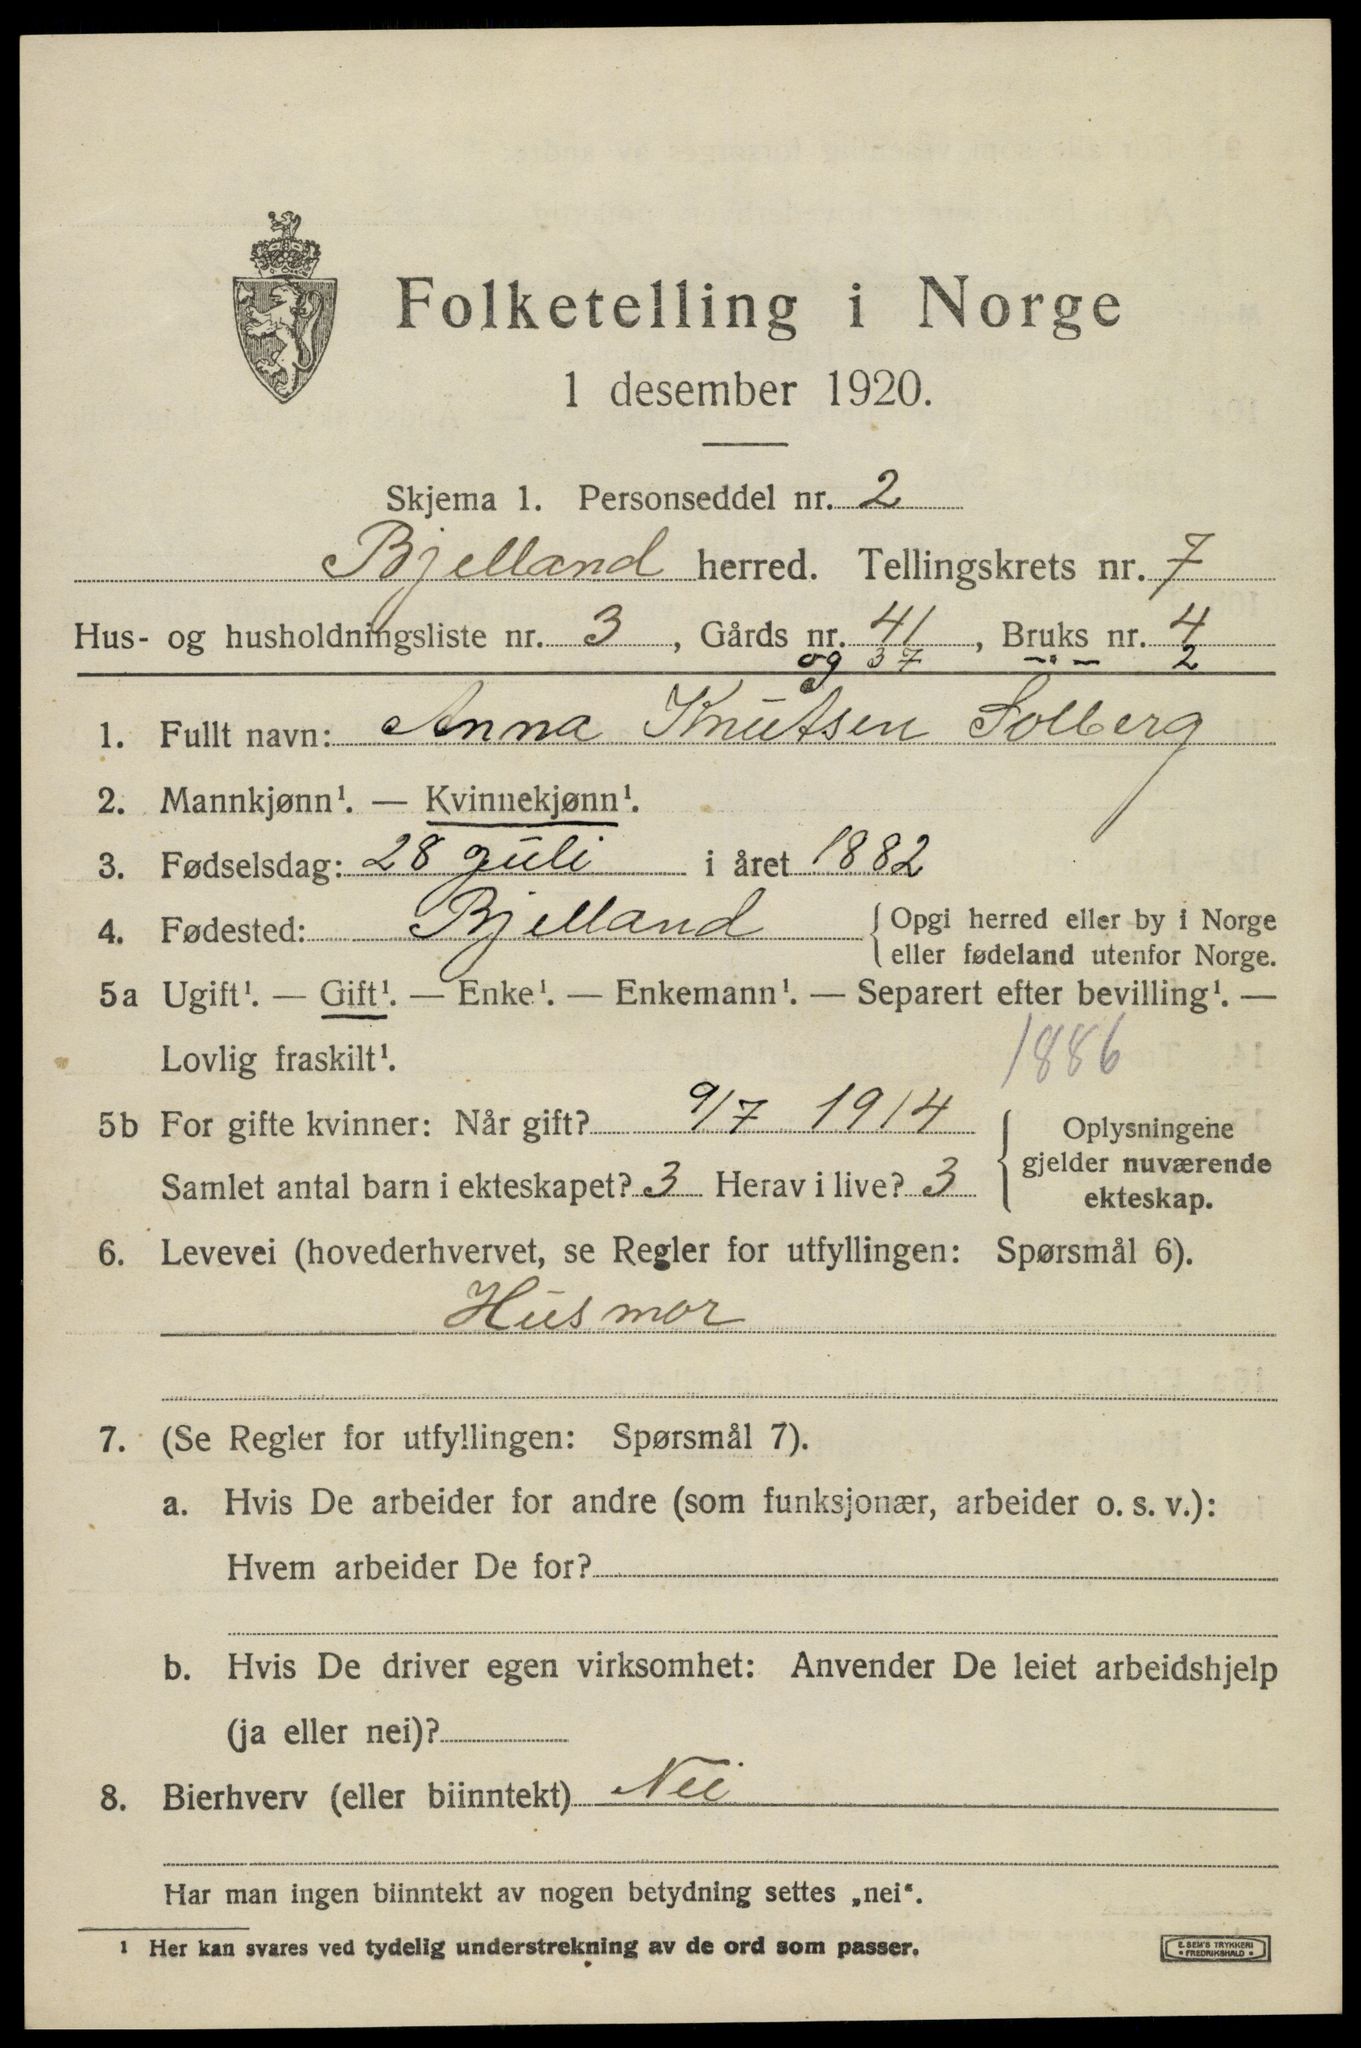 Folketelling i Norge
1 desember 1920.
Skjema 1. Personseddel nr. 2
Bjelland herred. Tellingskrets nr. 7
Hus- og husholdningsliste nr. 3, Gårds nr. 41, Bruks nr. 4
og 37 —„— 2
1. Fullt navn: Anna Knutsen Solberg
2. Mannkjønn¹. — Kvinnekjønn¹.
3. Fødselsdag: 28 juli i året 1882
4. Fødested: Bjelland { Opgi herred eller by i Norge
eller fødeland utenfor Norge.
5a Ugift¹. — Gift¹. — Enke¹. — Enkemann¹. — Separert efter bevilling¹. —
Lovlig fraskilt¹. 1886
5b For gifte kvinner: Når gift? 9/7 1914
Samlet antal barn i ekteskapet? 3 Herav i live? 3
Oplysningene
gjelder nuværende
ekteskap.
6. Levevei (hovederhvervet, se Regler for utfyllingen: Spørsmål 6).
Husmor
7. (Se Regler for utfyllingen: Spørsmål 7).
a. Hvis De arbeider for andre (som funksjonær, arbeider o. s. v.):
Hvem arbeider De for?
b. Hvis De driver egen virksomhet: Anvender De leiet arbeidshjelp
(ja eller nei)?
8. Bierhverv (eller biinntekt) Nei
Har man ingen biinntekt av nogen betydning settes „nei“.
¹ Her kan svares ved tydelig understrekning av de ord som passer.
E. SEM'S TRYKKERI
• FREDRIKSHALD •